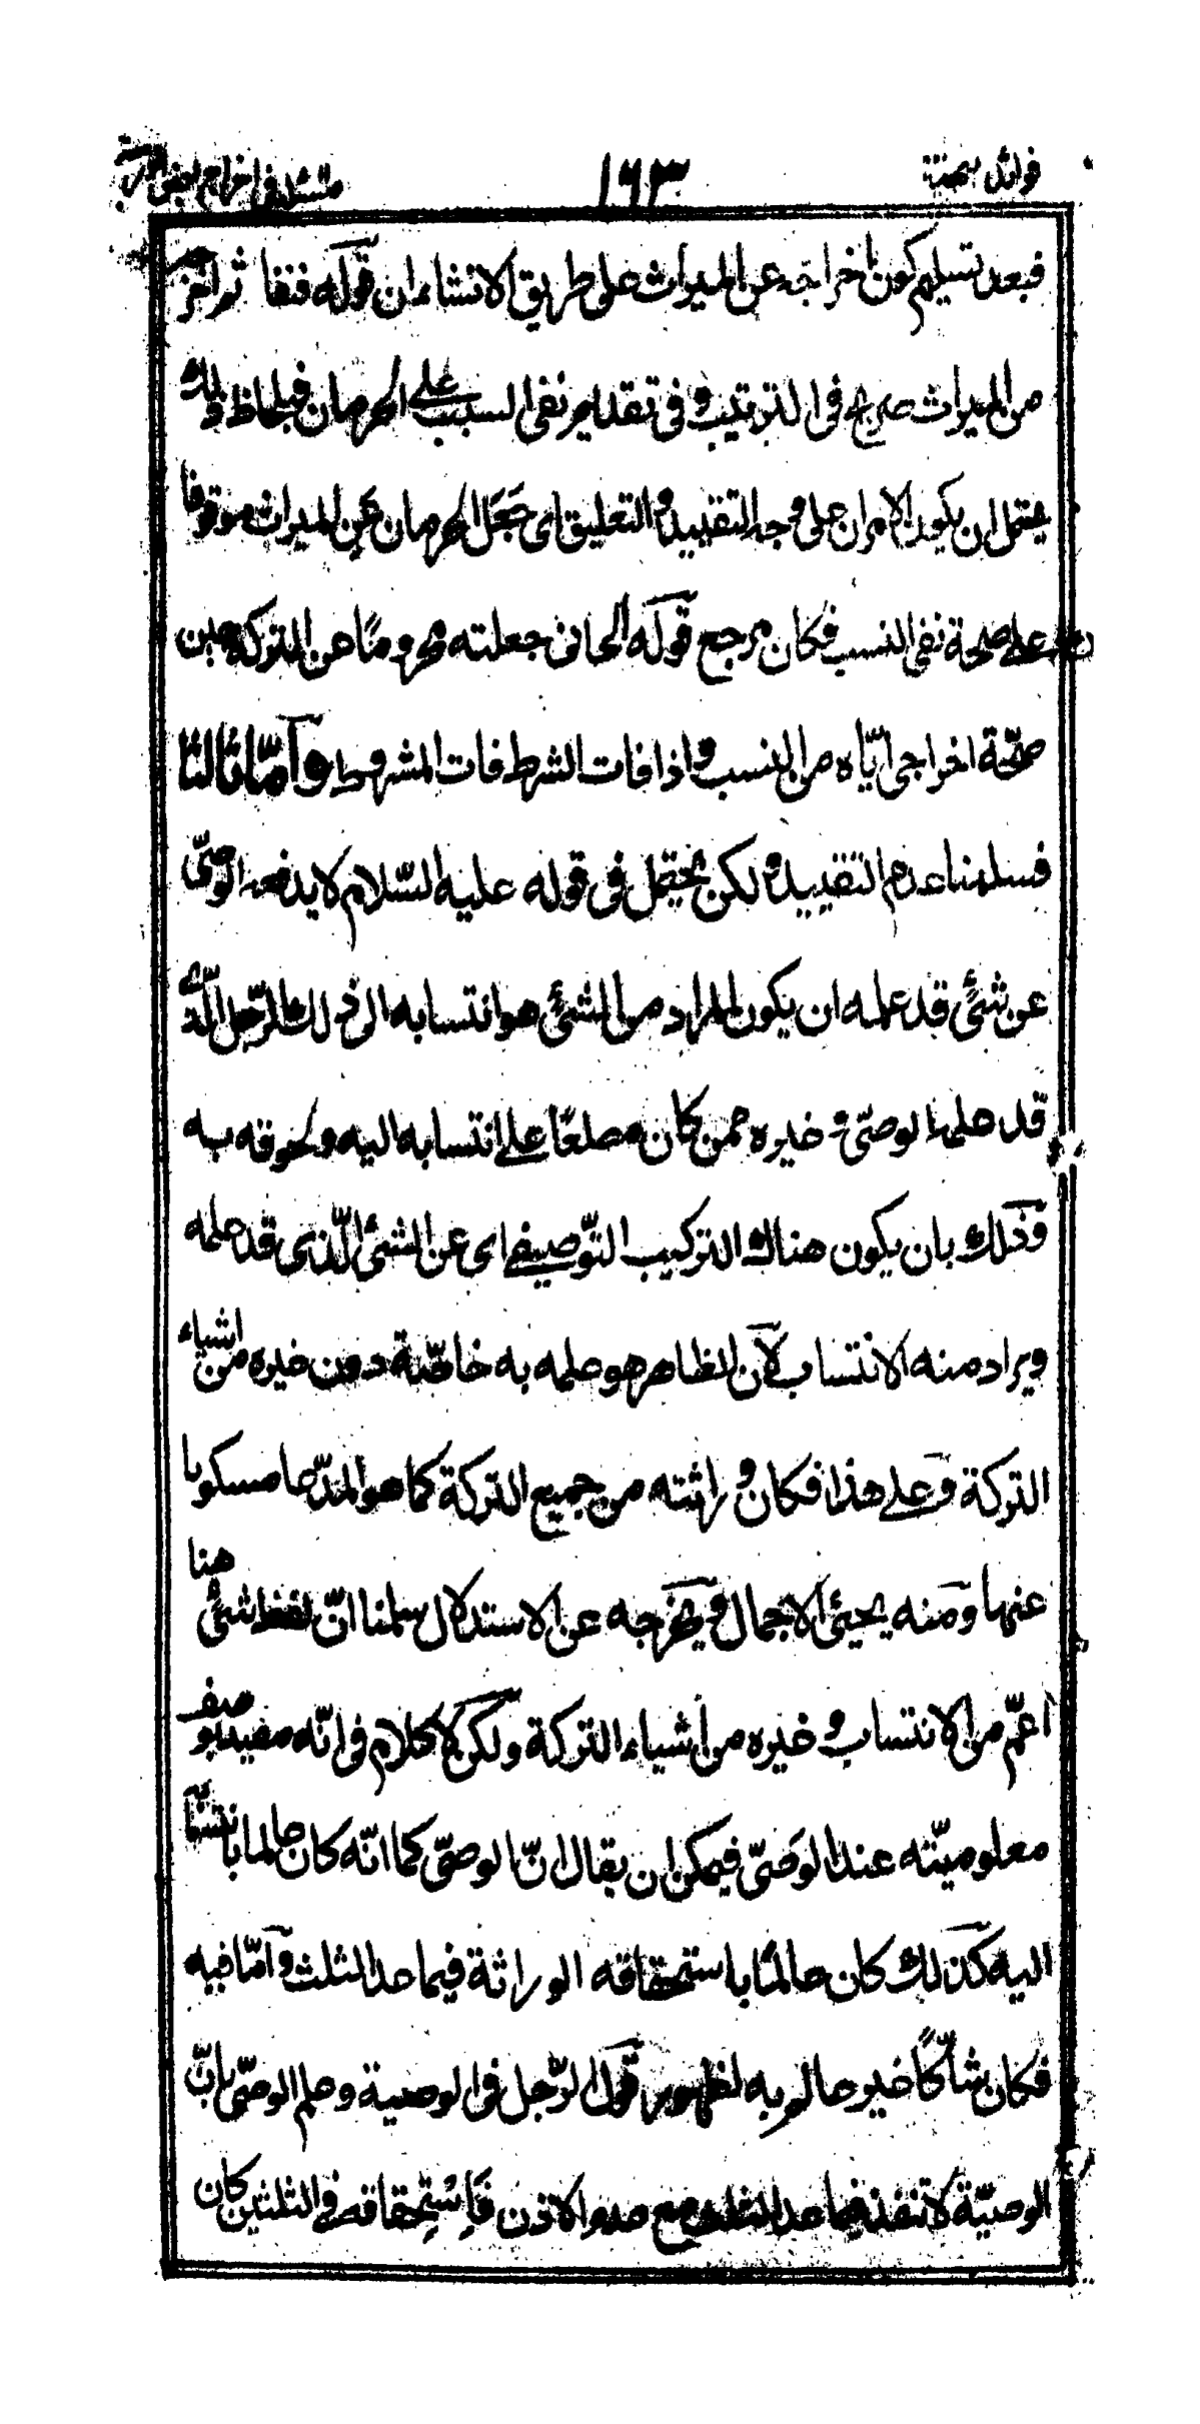 فوائد بهية ١٦٣ مسئلة فى اخراج بعض الورثة
فبعد تسليم كون اخراجه عن الميراث على طريق الانشاء ان قوله فنفا ثم اخرجه
من الميراث صريح فى الترتيب وفى تقديم نفى السبب على الحرمان فبلحاظ ذلك
يحتمل ان يكون الامر ان على وجه التقييد والتعليق اى جعل الحرمان عن الميراث موقوفا
على صحة نفى النسب فكان مرجع قوله الى ان جعلته محروما من التركة حين
صحّة اخراجى ايّاه من النسب واذا فات الشرط فات المشروط وامّا ثالثا
فسلمنا عدم التقييد ولكن يحتمل فى قوله عليه السّلام لا يدفعه الوصىّ
عن شئ قد علمه ان يكون المراد من الشئ هو انتسابه الى ذلك الرّجل الّذى
قد علمه الوصىّ و غيره ممن كان مطلعا على انتسابه اليه ولحوقه به
وذلك بان يكون هناك التركيب التّوصيفى اى عن الشئ الّذى قد علمه
ويراد منه الانتساب لان الظاهر هو علمه به خاصّة دون غيره من اشياء
التركة وعلى هذا فكان وراثته من جميع التركة كما هو المدّعا مسكوتا
عنها ومنه يجيئ الاجمال ويخرجه عن الاستدلال سلمنا انّ لفظ شئ هنا
اعمّ من الانتساب و غيره من اشياء التركة ولكن لا كلام فى انّه مقيد بوصف
معلوميّته عند الوصىّ فيمكن ان يقال انّ الوصىّ كما انّه كان عالما بانتسابه
اليه كذلك كان عالما باستحقاقه الوراثة فيما عدا الثلث وامّا فيه
فكان شاكّا غير عالم به لظهور قول الرّجل فى الوصية وعلم الوصىّ بانّ
الوصيّة لا تنفذ فيما عدا الثلث مع عدم الاذن فاستحقاقه فى الثلثين كان